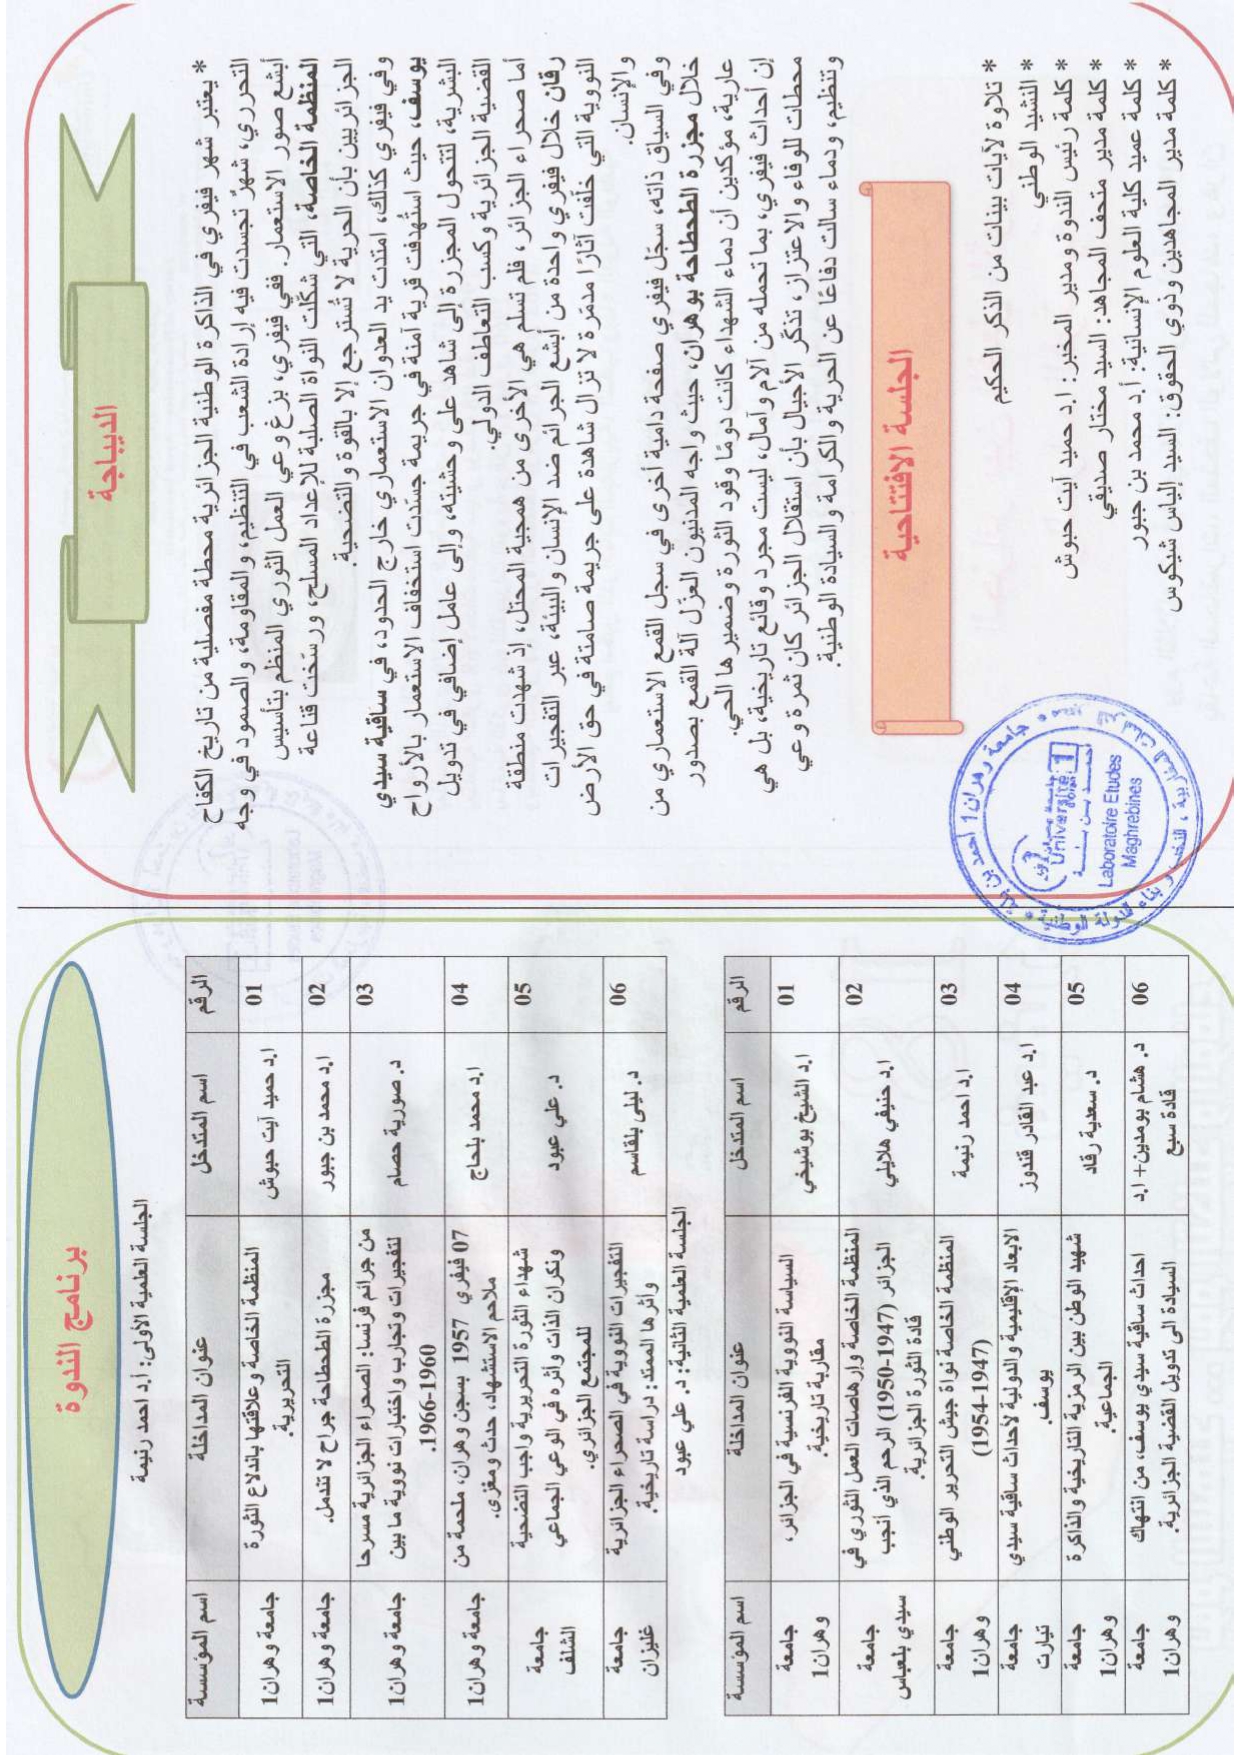 الديباجة
* يعتبر شهر فيفري في الذاكرة الوطنية الجزائرية محطة مفصلية من تاريخ الكفاح
التحرري، شهرٌ تجسدت فيه إرادة الشعب في التنظيم، والمقاومة، والصمود في وجه
أبشع صور الاستعمار. ففي فيفري، بزغ وعي العمل الثوري المنظم بتأسيس
المنظمة الخاصة، التي شكّلت النواة الصلبة للإعداد المسلح، ورسّخت قناعة
الجزائريين بأن الحرية لا تُسترجع إلا بالقوة والتضحية.
وفي فيفري كذلك، امتدت يد العدوان الاستعماري خارج الحدود، في ساقية سيدي
يوسف، حيث استُهدفت قرية آمنة في جريمة جسّدت استخفاف الاستعمار بالأرواح
البشرية، لتتحول المجزرة إلى شاهد على وحشيته، وإلى عامل إضافي في تدويل
القضية الجزائرية وكسب التعاطف الدولي.
أما صحراء الجزائر، فلم تسلم هي الأخرى من همجية المحتل، إذ شهدت منطقة
رقان خلال فيفري واحدة من أبشع الجرائم ضد الإنسان والبيئة، عبر التفجيرات
النووية التي خلّفت آثارًا مدمّرة لا تزال شاهدة على جريمة صامتة في حق الأرض
والإنسان.
وفي السياق ذاته، سجّل فيفري صفحة دامية أخرى في سجل القمع الاستعماري من
خلال مجزرة الطحطاحة بوهران، حيث واجه المدنيون العزّل آلة القمع بصدور
عارية، مؤكدين أن دماء الشهداء كانت دومًا وقود الثورة وضميرها الحي.
إن أحداث فيفري، بما تحمله من آلام وآمال، ليست مجرد وقائع تاريخية، بل هي
محطات للوفاء والاعتزاز، تذكّر الأجيال بأن استقلال الجزائر كان ثمرة وعي
وتنظيم، ودماء سالت دفاعًا عن الحرية والكرامة والسيادة الوطنية.
الجلسة الافتتاحية
* تلاوة لآيات بينات من الذكر الحكيم
* النشيد الوطني
* كلمة رئيس الندوة ومدير المخبر: ا.د حميد آيت حبوش
* كلمة مدير متحف المجاهد: السيد مختار صديقي
* كلمة عميد كلية العلوم الإنسانية: أ.د محمد بن جبور
* كلمة مدير المجاهدين وذوي الحقوق: السيد إلياس شيكوس
جامعة وهران1 أحمد بن بلة
Université
1
Laboratoire Etudes
Maghrebines
برنامج الندوة
الجلسة العلمية الأولى: أ.د احمد رنيمة
الرقم اسم المتدخل عنوان المداخلة اسم المؤسسة
01 ا.د حميد آيت حبوش المنظمة الخاصة وعلاقتها باندلاع الثورة جامعة وهران1
التحريرية.
02 ا.د محمد بن جبور مجزرة الطحطاحة جراح لا تندمل. جامعة وهران1
03 د. صورية حصام من جرائم فرنسا: الصحراء الجزائرية مسرحا جامعة وهران1
لتفجيرات وتجارب واختبارات نووية ما بين
1960-1966.
04 ا.د محمد بلحاج 07 فيفري 1957 بسجن وهران، ملحمة من جامعة وهران1
ملاحم الاستشهاد، حدث ومغزى.
05 د. علي عبود شهداء الثورة التحريرية واجب التضحية جامعة
ونكران الذات وأثره في الوعي الجماعي الشلف
للمجتمع الجزائري.
06 د. ليلى بلقاسم التفجيرات النووية في الصحراء الجزائرية جامعة
وأثرها الممتد: دراسة تاريخية. غليزان
الجلسة العلمية الثانية: د. علي عبود
الرقم اسم المتدخل عنوان المداخلة اسم المؤسسة
01 ا.د الشيخ بوشيخي السياسة النووية الفرنسية في الجزائر، جامعة
مقاربة تاريخية. وهران1
02 ا.د حنيفي هلايلي المنظمة الخاصة وإرهاصات العمل الثوري في جامعة
الجزائر (1947-1950) الرحم الذي أنجب سيدي بلعباس
قادة الثورة الجزائرية.
03 ا.د احمد رنيمة المنظمة الخاصة نواة جيش التحرير الوطني جامعة
(1947-1954) وهران1
04 ا.د عبد القادر قندوز الابعاد الإقليمية والدولية لأحداث ساقية سيدي جامعة
يوسف. تيارت
05 د. سعدية رقاد شهيد الوطن بين الرمزية التاريخية والذاكرة جامعة
الجماعية. وهران1
06 د. هشام بومدين+ ا.د احداث ساقية سيدي يوسف، من انتهاك جامعة
قادة سبع السيادة الى تدويل القضية الجزائرية. وهران1